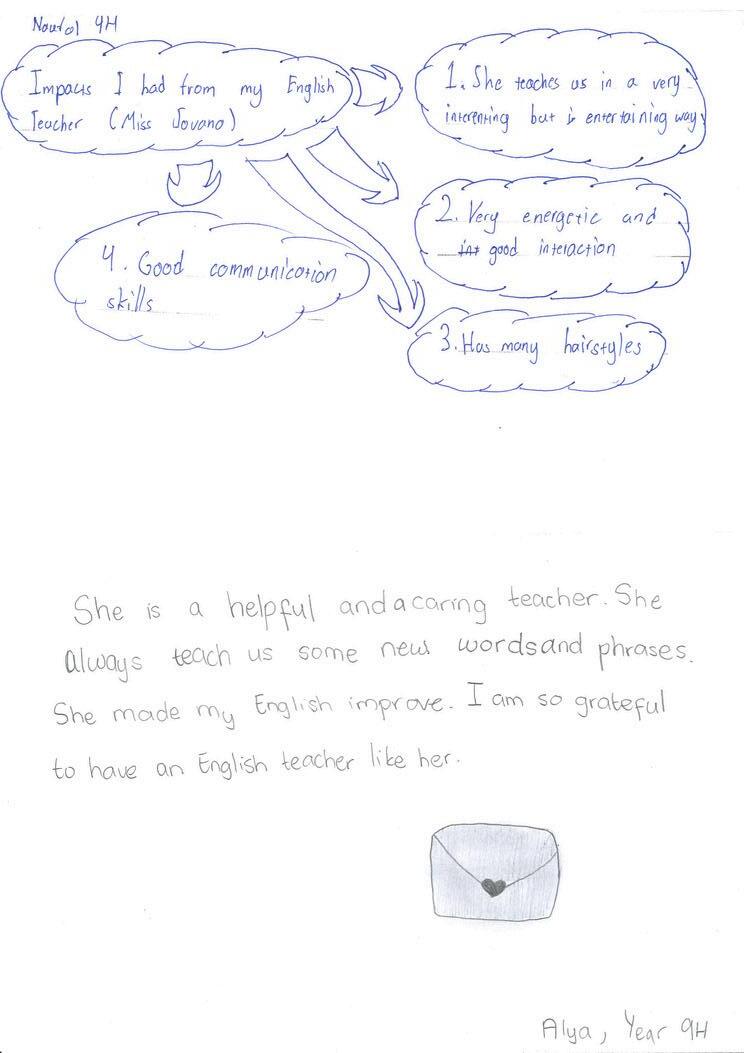 Naufal 9H
Impacts I had from my English
Teacher (Miss Jovana)
1. She teaches us in a very
interenting but is entertaining way
2. Very energetic and
int good interaction
4. Good communication
skills
3. Has many hairstyles
She is a helpful and a caring teacher. She
always teach us some new words and phrases.
She made my English improve. I am so grateful
to have an English teacher like her.
Alya, Year 9H